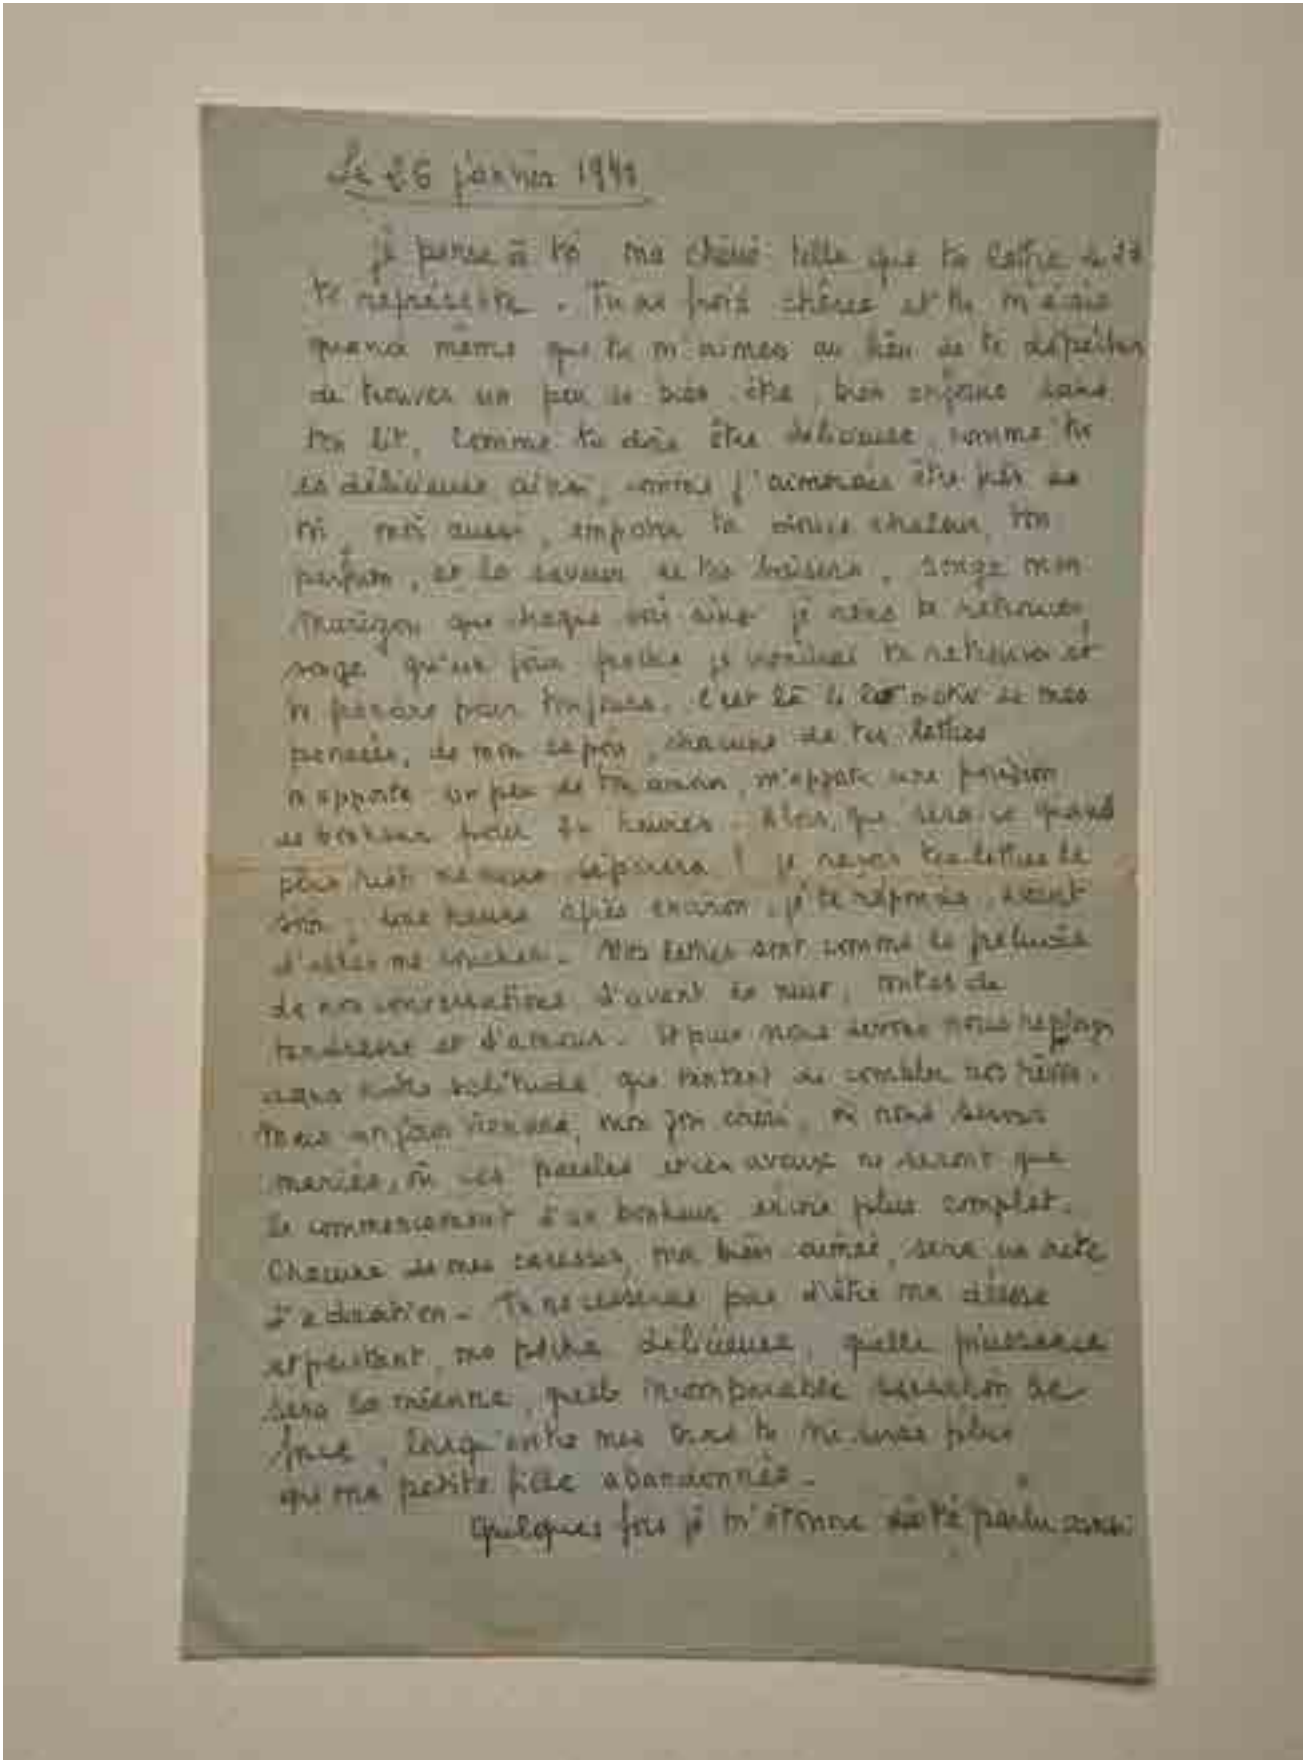 Le 26 janvier 1940
je pense à toi ma chérie telle que ta lettre du 24
te représente. Tu as froid chérie et tu m'écris
quand même que tu m'aimes au lieu de te dépêcher
de trouver un peu de bien être, bien enfouie dans
ton lit, comme tu dois être délicieuse, comme tu
es délicieuse ainsi, comme j'aimerais être près de
toi, moi aussi, ta douce chaleur, ton
parfum, et la saveur de tes baisers, songe mon
que chaque soir ainsi je viens te retrouver,
songe qu'un jour proche je viendrai te retrouver et
te prendre pour toujours. C'est là le leit motiv de mes
pensées, de mon espoir, chacune de tes lettres
m'apporte un peu de ton amour, m'apporte une provision
de bonheur pour 24 heures. Alors, que sera ce quand
plus rien ne nous séparera ! je reçois tes lettres le
soir, une heure après environ, je te réponds, avant
d'aller me coucher. Nos lettres sont comme le prélude
de nos conversations d'avant la nuit, toutes de
tendresse et d'amour. Et puis nous devons nous replonger
dans notre solitude que tentent de combler nos rêves.
Mais un jour viendra, mon, où nous serons
mariés, où ces paroles et ces aveux ne seront que
le commencement d'un bonheur encore plus complet.
Chacune de mes caresses, ma bien aimée, sera un acte
d'adoration. Tu ne cesseras pas d'être ma déesse
et pourtant, ma délicieuse, quelle puissance
sera la mienne, quelle incomparable sensation de
force, lorsqu'entre mes bras tu ne seras plus
que ma petite fille abandonnée.
Quelques fois je m'étonne de te parler ainsi